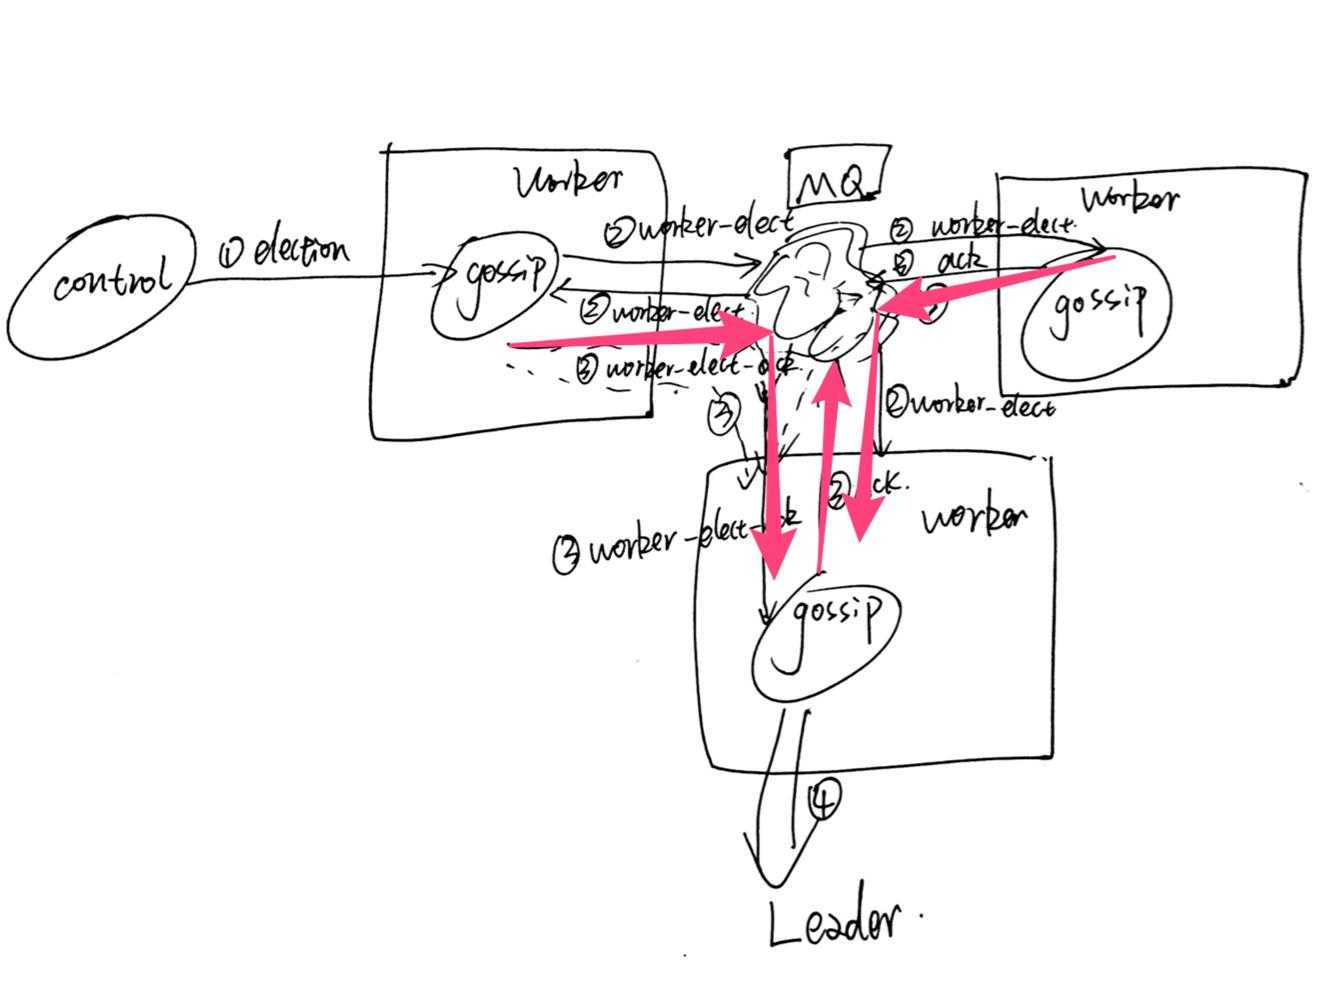 worker
MQ
worker
control
① election
gossip
②worker-elect
② worker-elect.
③ ack
②worker-elect
③ worker-elect-ack
gossip
③
②worker-elect
worker
③ worker-elect-
gossip
④
Leader.